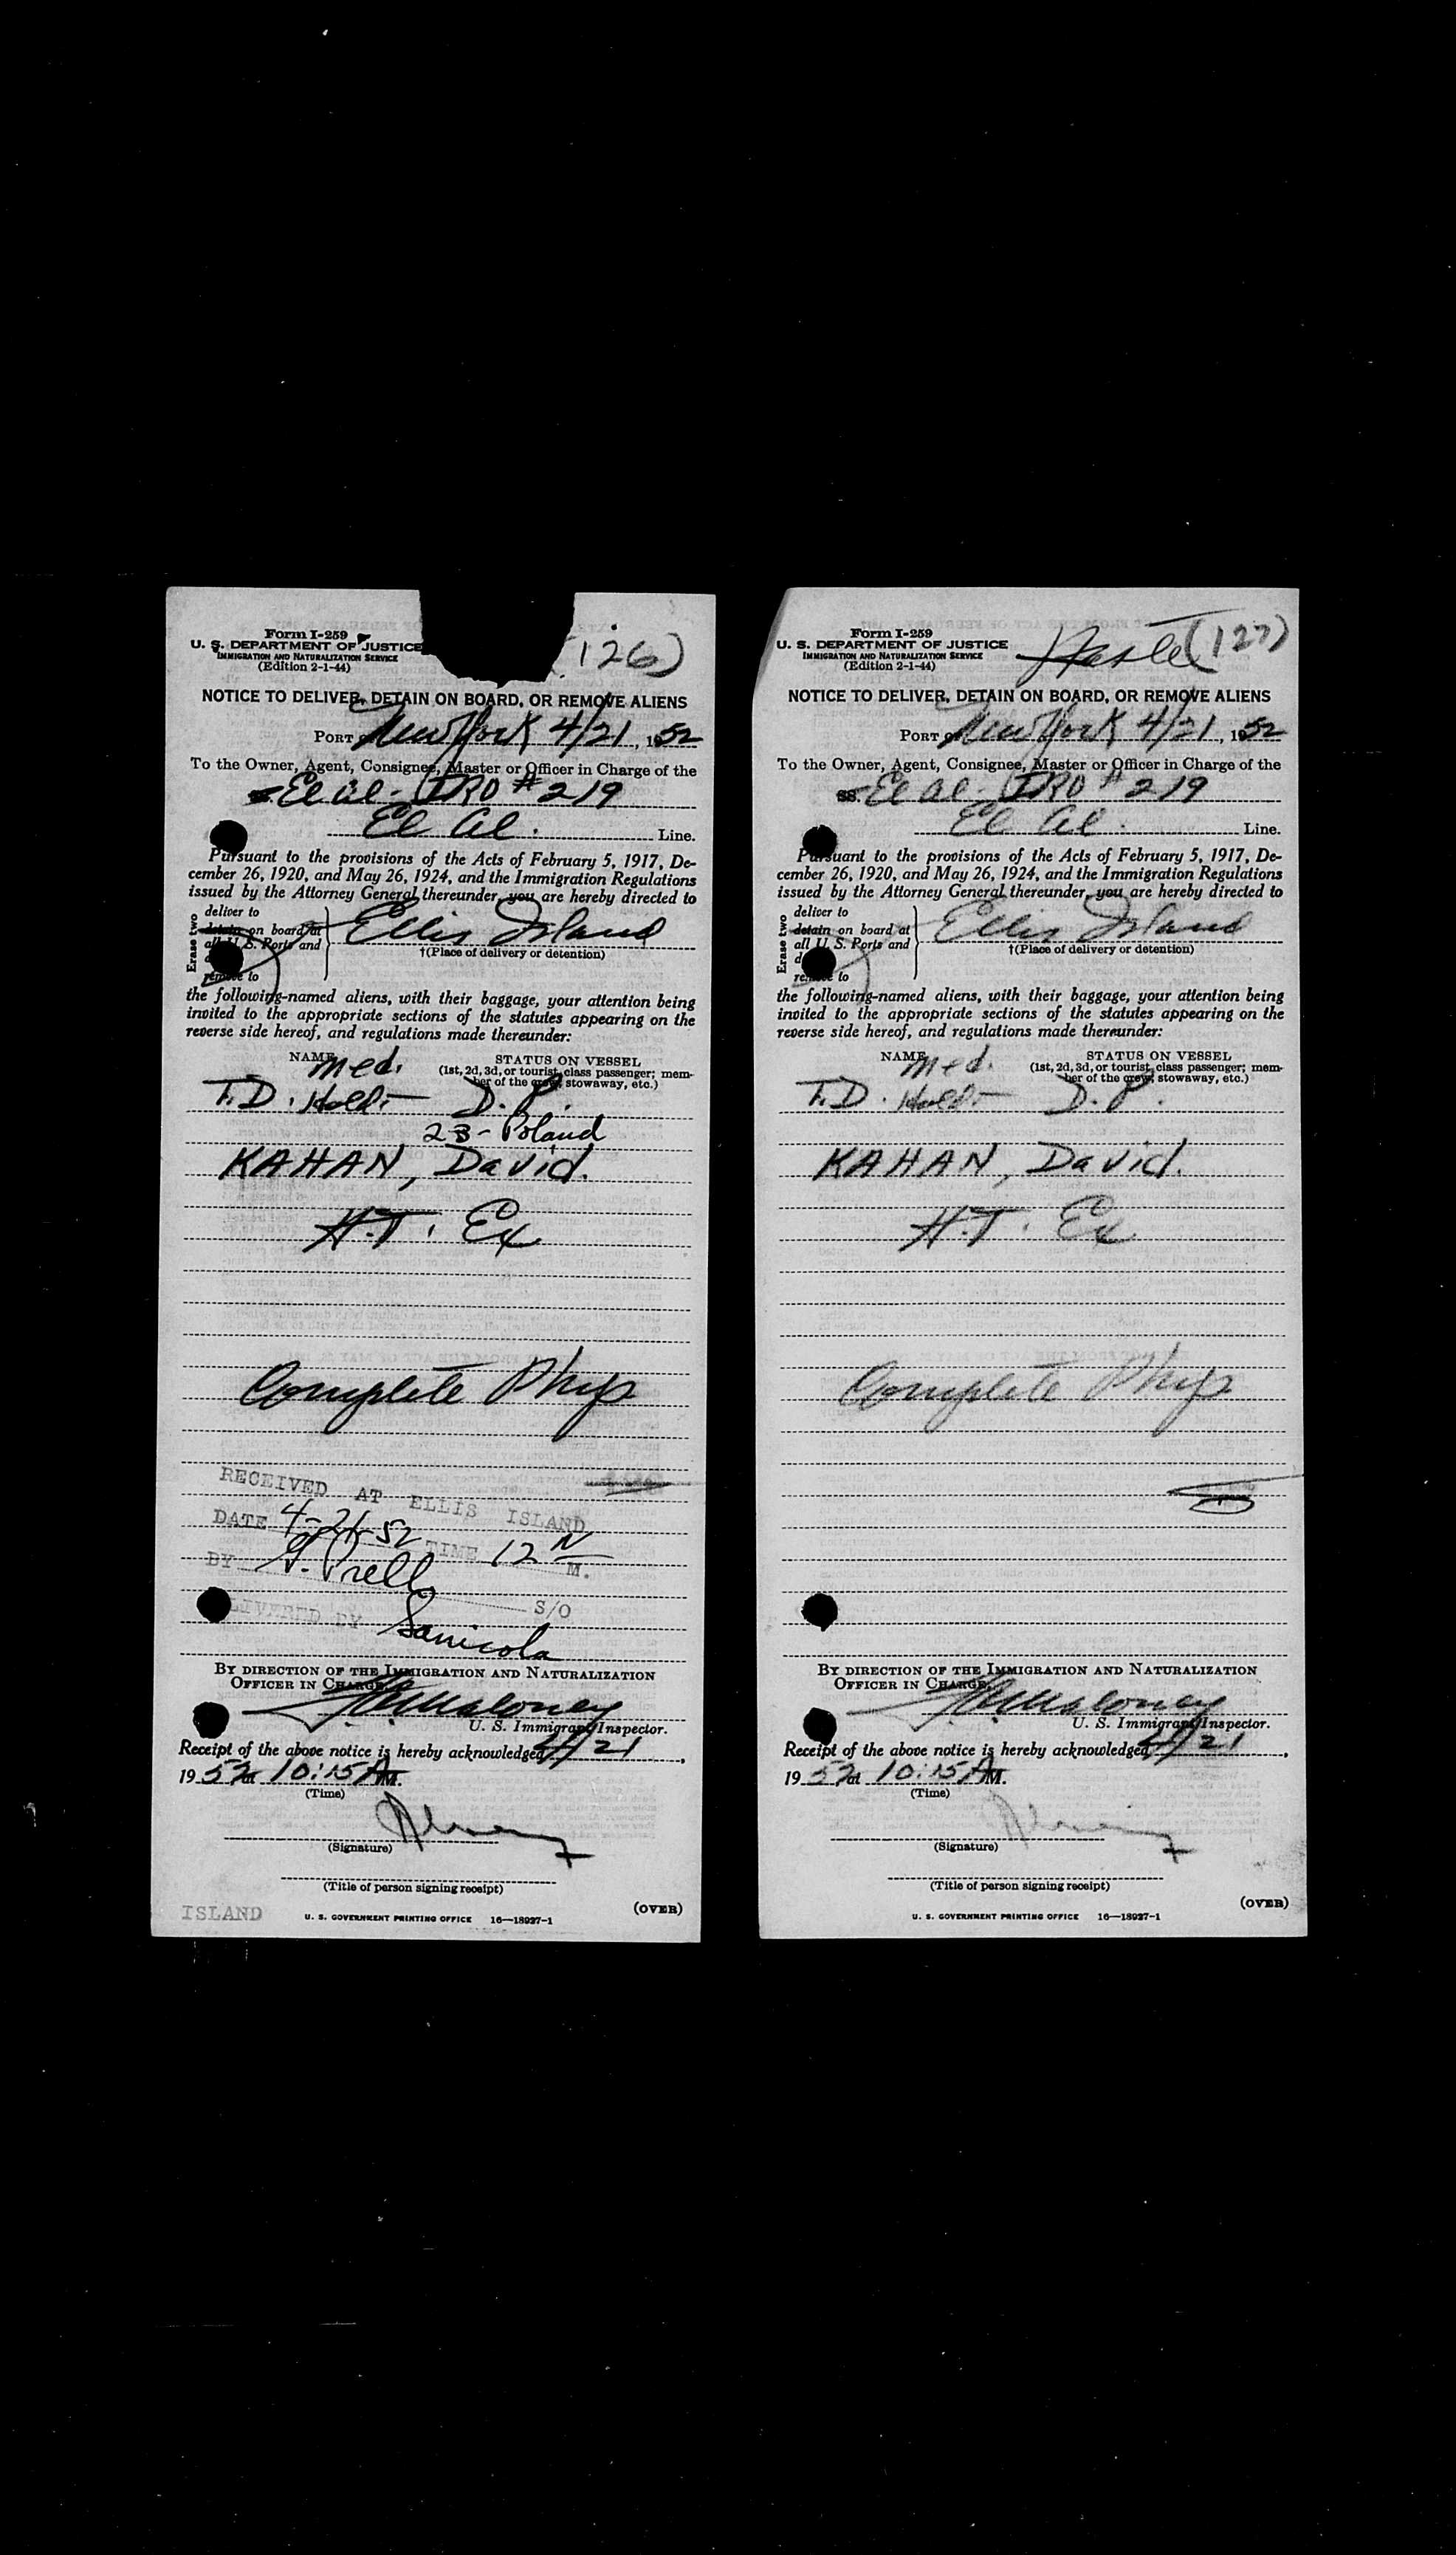 Form I-259
U. S. DEPARTMENT OF JUSTICE
IMMIGRATION AND NATURALIZATION SERVICE
(Edition 2-1-44)
(126)
NOTICE TO DELIVER, DETAIN ON BOARD, OR REMOVE ALIENS
PORT of New York 4/21, 1952
To the Owner, Agent, Consignee, Master or Officer in Charge of the
SS. El Al. IRO # 219
El Al. Line.
Pursuant to the provisions of the Acts of February 5, 1917, De-
cember 26, 1920, and May 26, 1924, and the Immigration Regulations
issued by the Attorney General thereunder, you are hereby directed to
Erase two
deliver to
detain on board at
all U. S. Ports and
remove to
Ellis Island
†(Place of delivery or detention)
the following-named aliens, with their baggage, your attention being
invited to the appropriate sections of the statutes appearing on the
reverse side hereof, and regulations made thereunder:
NAME
STATUS ON VESSEL
(1st, 2d, 3d, or tourist class passenger; mem-
ber of the crew, stowaway, etc.)
Med.
T.D. Held- D.P.
23- Poland
KAHAN, David.
H.T. Ex
Complete Phys
RECEIVED AT ELLIS ISLAND
DATE 4-21-52 TIME 12 N M.
BY
S/O
DELIVERED BY Sanicola
BY DIRECTION OF THE IMMIGRATION AND NATURALIZATION
OFFICER IN CHARGE,
Maloney
U. S. Immigrant Inspector.
Receipt of the above notice is hereby acknowledged 4/21,
1952 at 10:15 A M.
(Time)
(Signature)
(Title of person signing receipt)
(OVER)
ISLAND
U. S. GOVERNMENT PRINTING OFFICE 16—18927-1
Form I-259
U. S. DEPARTMENT OF JUSTICE
IMMIGRATION AND NATURALIZATION SERVICE
(Edition 2-1-44)
(127)
NOTICE TO DELIVER, DETAIN ON BOARD, OR REMOVE ALIENS
PORT of New York 4/21, 1952
To the Owner, Agent, Consignee, Master or Officer in Charge of the
SS. El Al. IRO # 219
El Al. Line.
Pursuant to the provisions of the Acts of February 5, 1917, De-
cember 26, 1920, and May 26, 1924, and the Immigration Regulations
issued by the Attorney General thereunder, you are hereby directed to
Erase two
deliver to
detain on board at
all U. S. Ports and
remove to
Ellis Island
†(Place of delivery or detention)
the following-named aliens, with their baggage, your attention being
invited to the appropriate sections of the statutes appearing on the
reverse side hereof, and regulations made thereunder:
NAME
STATUS ON VESSEL
(1st, 2d, 3d, or tourist class passenger; mem-
ber of the crew, stowaway, etc.)
Med.
T.D. Held- D.P.
KAHAN, David.
H.T. Ex
Complete Phys
BY DIRECTION OF THE IMMIGRATION AND NATURALIZATION
OFFICER IN CHARGE,
Maloney
U. S. Immigrant Inspector.
Receipt of the above notice is hereby acknowledged 4/21,
1952 at 10:15 A M.
(Time)
(Signature)
(Title of person signing receipt)
(OVER)
U. S. GOVERNMENT PRINTING OFFICE 16—18927-1